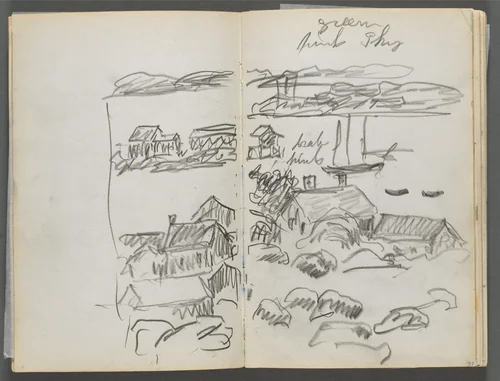 green
pink sky
pink